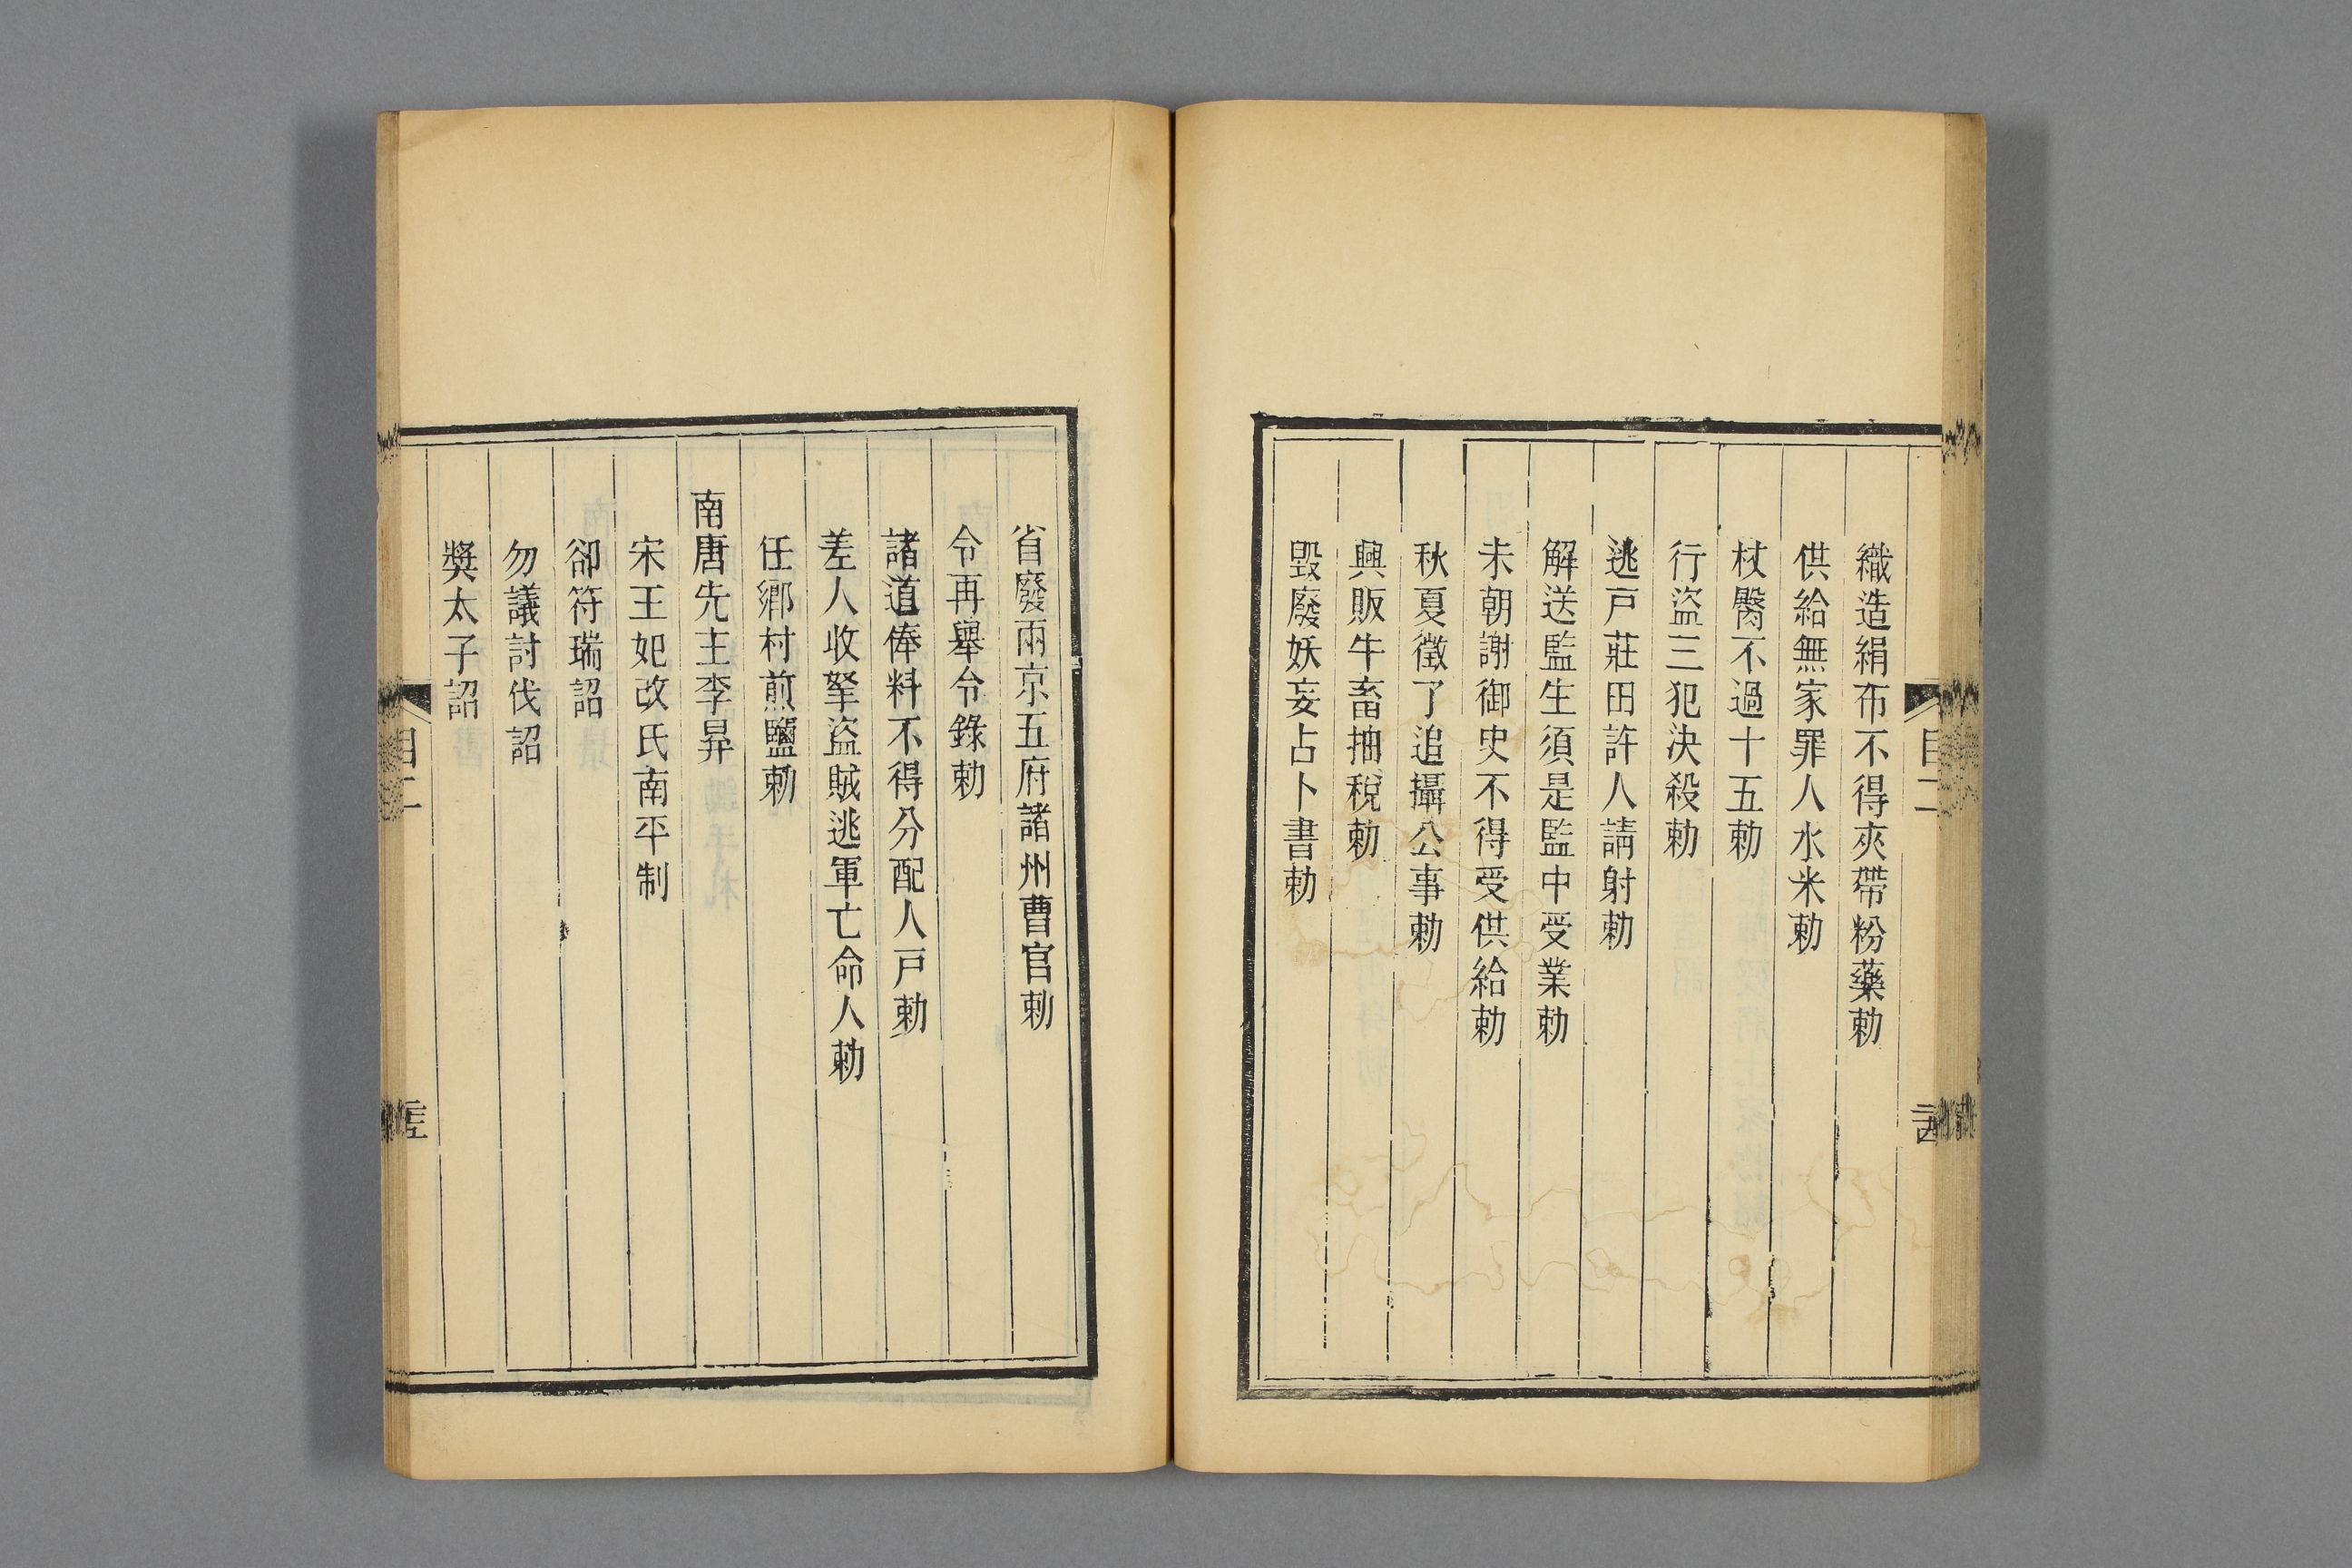 織造絹布不得夾帶粉藥勅
供給無家罪人水米勅
杖臀不過十五勅
行盜三犯決殺勅
逃戸莊田許人請射勅
解送監生須是監中受業勅
未朝謝御史不得受供給勅
秋夏徵了追攝公事勅
興販牛畜抽稅勅
毀廢妖妄占卜書勅
省廢兩京五府諸州曹官勅
令再舉令錄勅
諸道俸料不得分配人戸勅
差人收拏盜賊逃軍亡命人勅
任鄉村煎鹽勅
南唐先主李昪
宋王妃改氏南平制
卻符瑞詔
勿議討伐詔
獎太子詔
目二